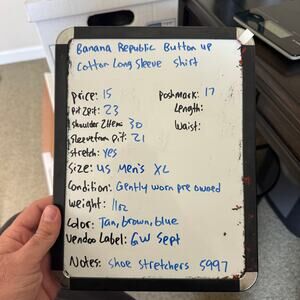 Banana Republic Button up
Cotton Long Sleeve Shirt
Price: 15
Poshmark: 17
Pit 2 Pit: 23
Length:
Shoulder 2 Hem: 30
Waist:
Sleeve from Pit: 21
Stretch: Yes
Size: US Men's XL
Condition: Gently worn pre owned
Weight: 11oz
Color: Tan, brown, blue
Vendoo Label: GW Sept
Notes: Shoe Stretchers 5997